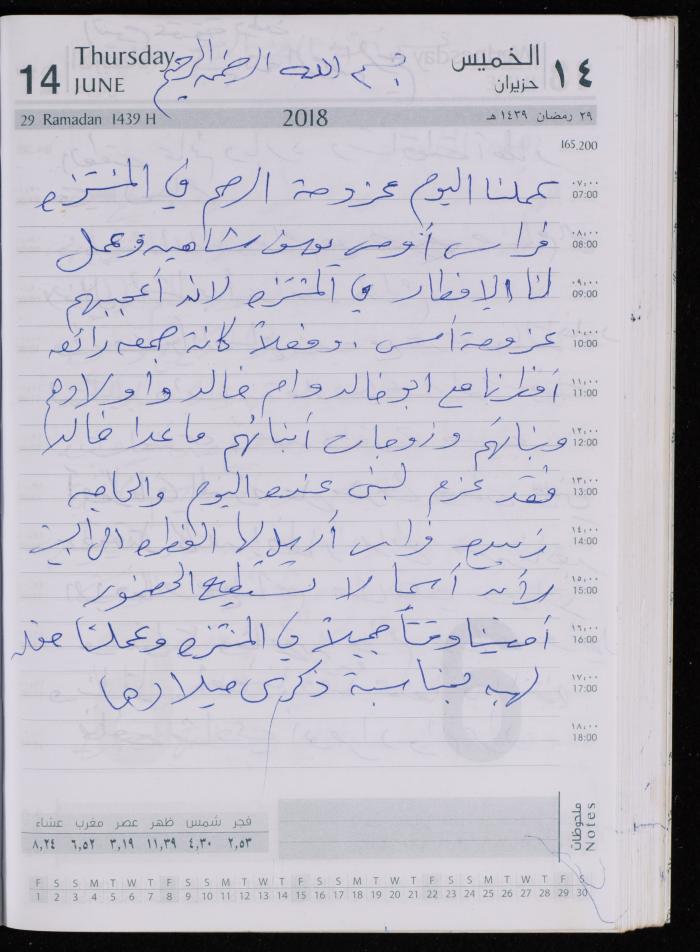 14 Thursday JUNE
بسم الله الرحمن الرحيم
الخميس حزيران ١٤
29 Ramadan 1439 H 2018 ٢٩ رمضان ١٤٣٩ هـ
165.200
عملنا اليوم عزومة الرحم في المنتزه
٠٧:٠٠ 07:00
فراس أوصى يوسف شاهين وعمل
٠٨:٠٠ 08:00
لنا الافطار في المنتزه لانه أعجبهم
٠٩:٠٠ 09:00
عزومة أمس، وفعلاً كانة جمعه رائعه
١٠:٠٠ 10:00
أفطرنا مع ابو خالد وام خالد واولادهم
١١:٠٠ 11:00
وبناتهم وزوجات أبنائهم ماعدا خالد
١٢:٠٠ 12:00
فقد عزم لبنى عنده اليوم والحاجه
١٣:٠٠ 13:00
أرسل لها الفطره الى البيت
١٤:٠٠ 14:00
لأنه لا تستطيع الحضور
١٥:٠٠ 15:00
أمضينا وقتاً جميلاً في المنتزه وعملنا حفله
١٦:٠٠ 16:00
لهبه بمناسبة ذكرى ميلادها
١٧:٠٠ 17:00
١٨:٠٠ 18:00
ملحوظات Notes
فجر شمس ظهر عصر مغرب عشاء
٢,٥٣ ٤,٣٠ ١١,٣٩ ٣,١٩ ٦,٥٢ ٨,٢٤
F S S M T W T F S S M T W T F S S M T W T F S S M T W T F S
1 2 3 4 5 6 7 8 9 10 11 12 13 14 15 16 17 18 19 20 21 22 23 24 25 26 27 28 29 30